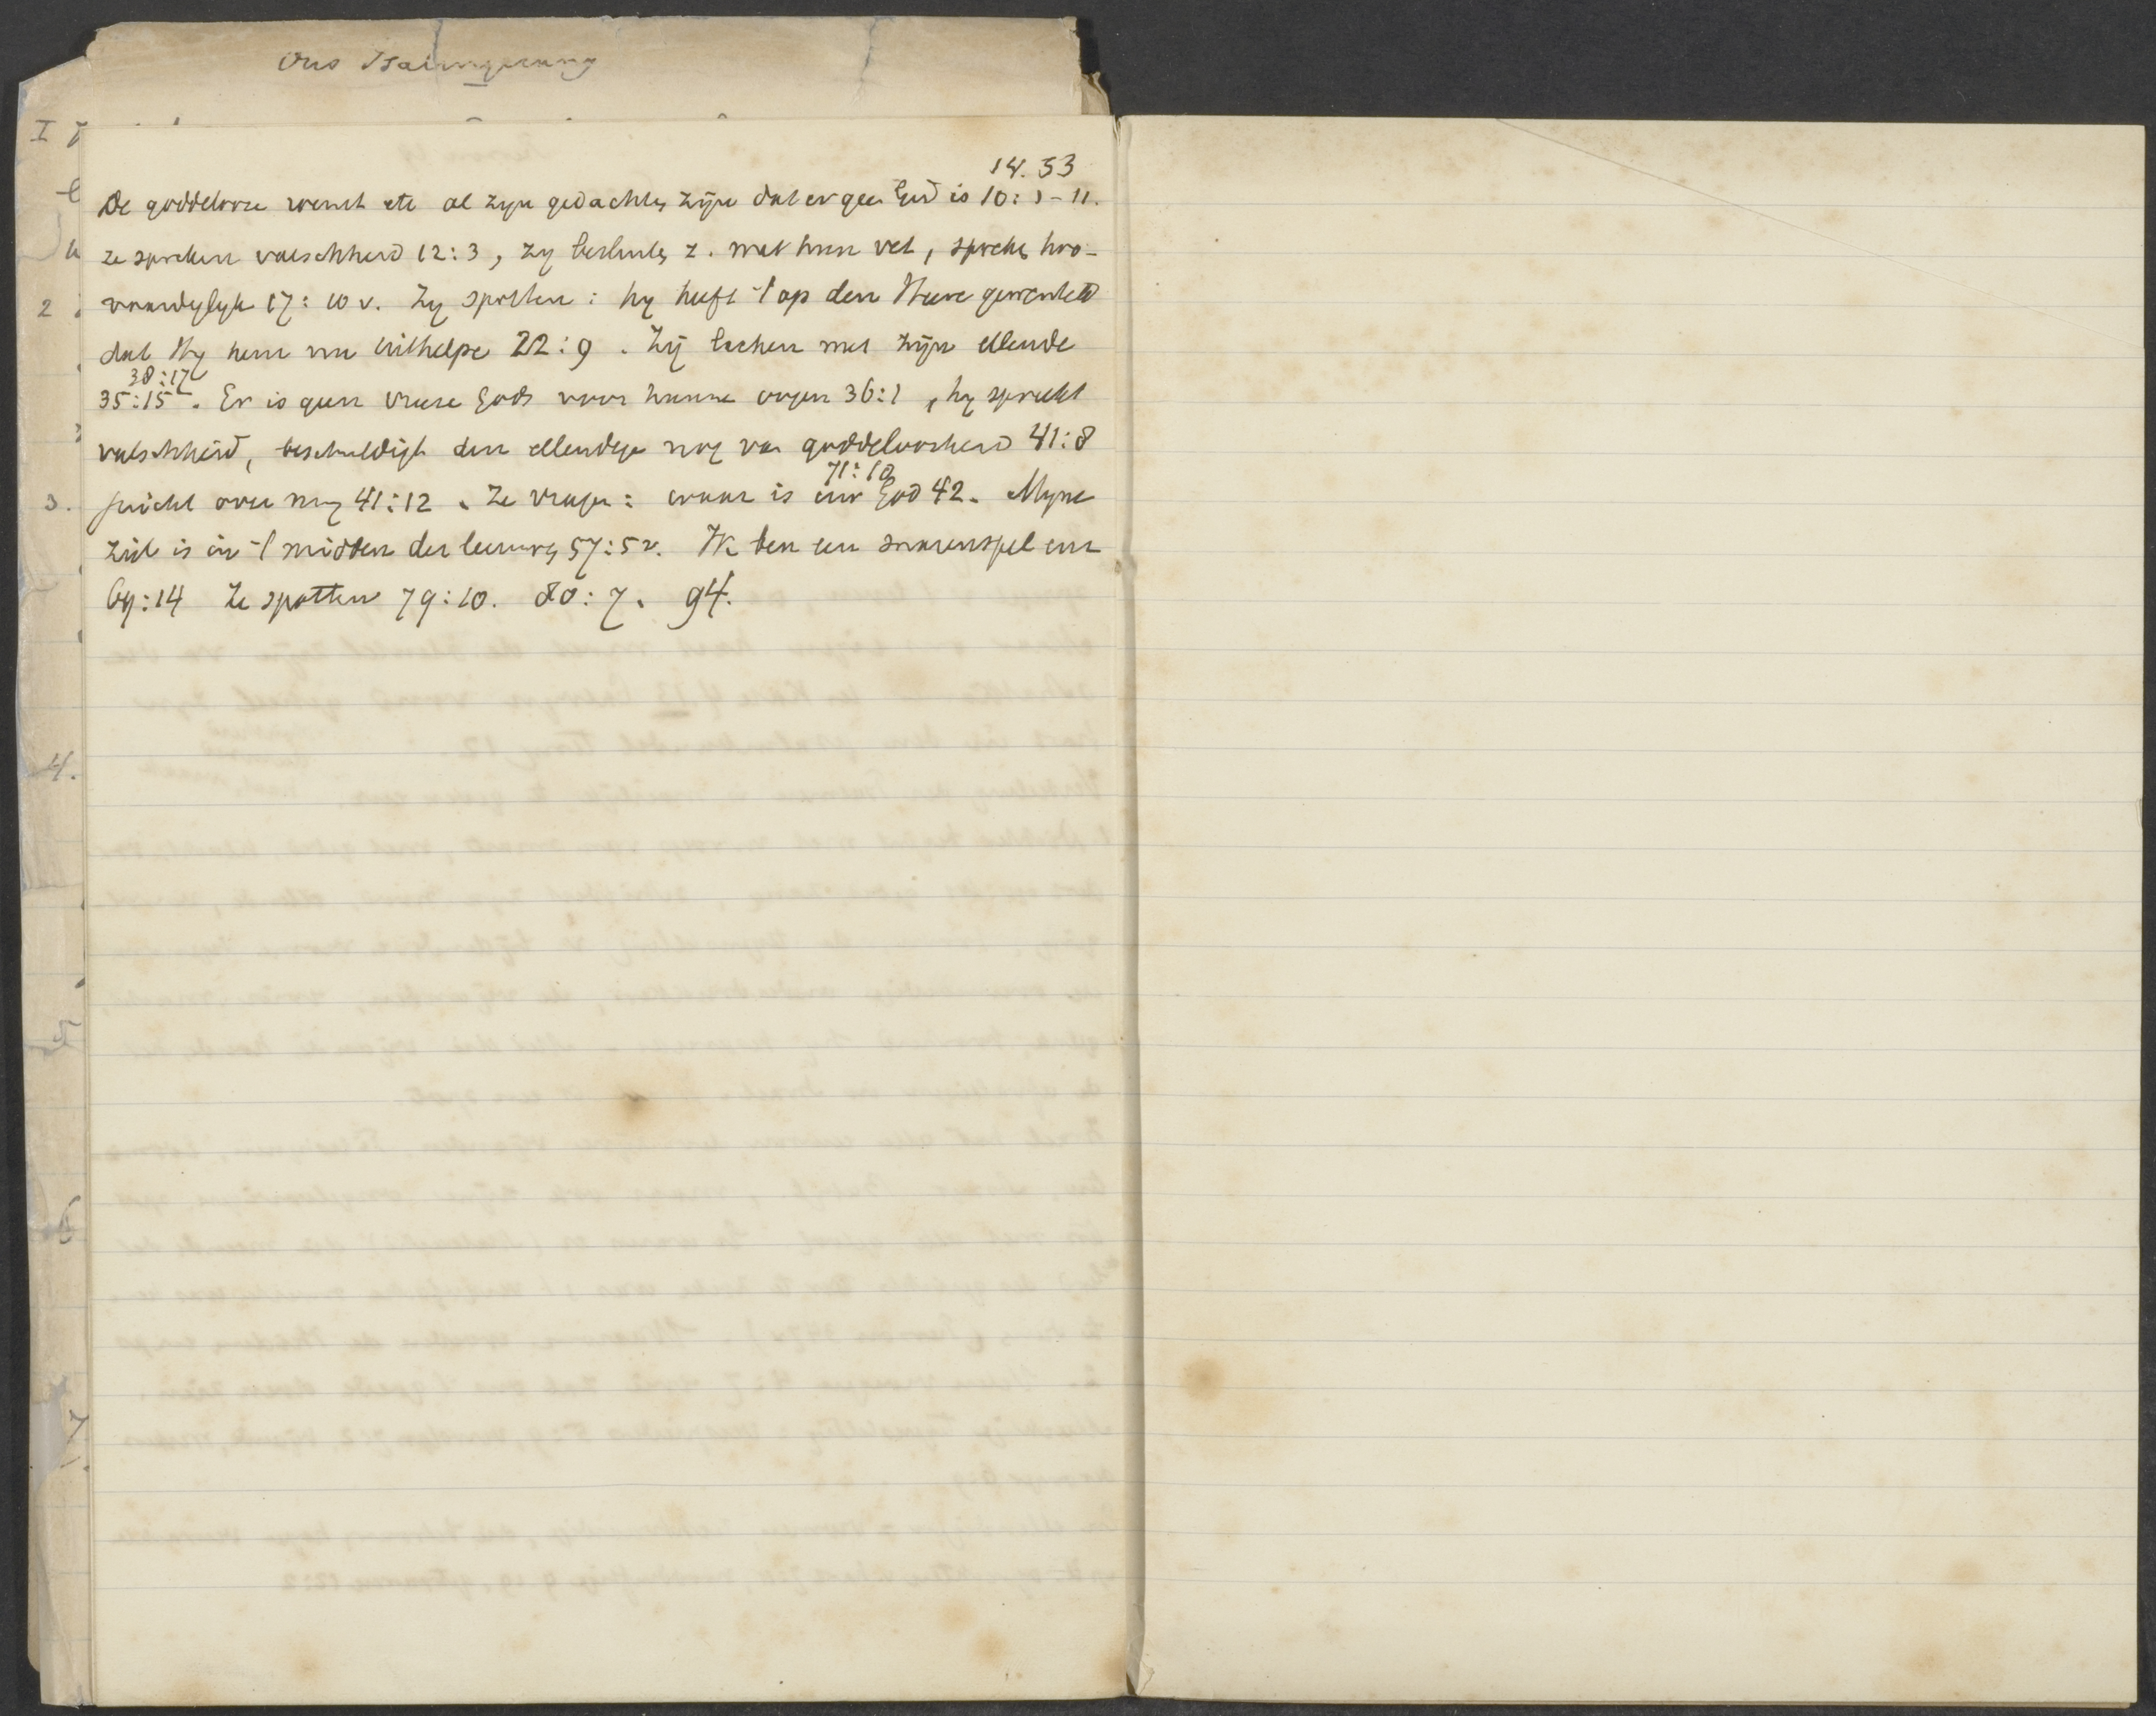 Ons Psalmgezang
I
14. 53
De goddelooze roemt etc al zyn gedachten zijn dat er geen God is 10: 3-11.
ze spreken valschheid 12:3, zy besluiten z. met hun vet, spreken hoo-
vaardiglyk 17:10 v. Zy spotten: hy heeft 't op den Heere gewenteld
2
dat Hy hem nu uithelpe 22:9. Zij lachen met zijn ellende
38:17
35:15. Er is geen vreze Gods voor hunne oogen 36:2, hy spreekt
valschheid, beschuldigt den ellendige nog van goddeloosheid 41:8
71:10
3.
juicht over my 41:12. Ze vragen: waar is uw God 42. Myne
ziel is in 't midden der leeuwen 57:5v. Ik ben een snarenspel enz
69:14 Ze spotten 79:10. 80:7. 94.
4.
5
6
7